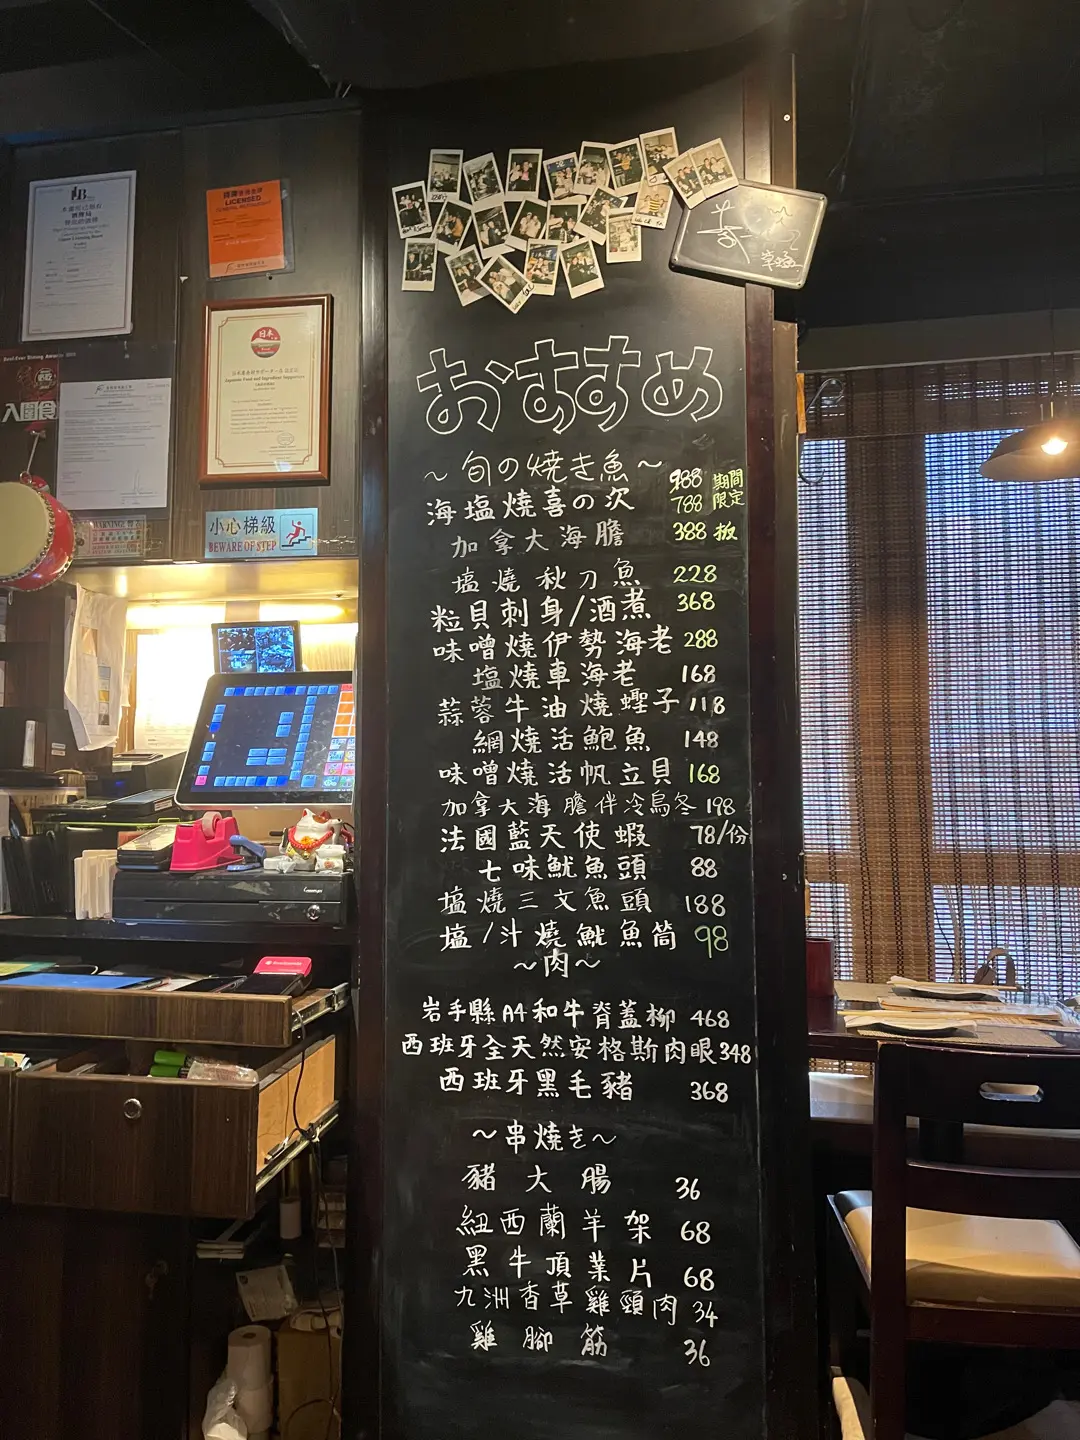 LICENSED
日本
Japanese Food and Ingredient Supporter
入圍食
小心梯級
BEWARE OF STEP
WARNING!
おすすめ
~旬の焼き魚~ 988 期間
海塩燒喜の次 788 限定
加拿大海膽 388 板
塩燒秋刀魚 228
粒貝刺身/酒煮 368
味噌燒伊勢海老 288
塩燒車海老 168
蒜蓉牛油燒蟶子 118
網燒活鮑魚 148
味噌燒活帆立貝 168
加拿大海膽伴冷烏冬 198
法國藍天使蝦 78/份
七味魷魚頭 88
塩燒三文魚頭 188
塩/汁燒魷魚筒 98
~肉~
岩手縣A4和牛脊蓋柳 468
西班牙全天然安格斯肉眼 348
西班牙黑毛豬 368
~串燒き~
豬大腸 36
紐西蘭羊架 68
黑牛頂業片 68
九洲香草雞頸肉 34
雞腳筋 36